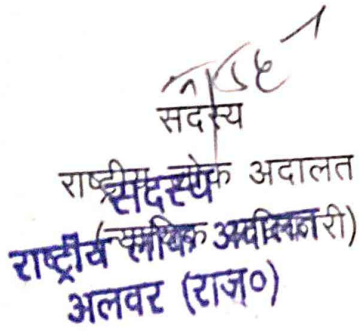 सदस्य
राष्ट्रीय लोक अदालत
सदस्य
(न्यायिक अधिकारी)
राष्ट्रीय लोक अदालत
अलवर (राज०)